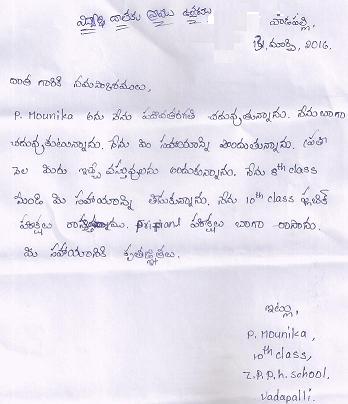 విద్యార్థి దాతకు వ్రాయు ఉత్తరము
వాడపల్లి,
మార్చి, 2016.
దాత గారికి నమస్కారములు,
P. Mounika అను నేను పదవతరగతి చదువుతున్నాను. నేను బాగా
చదువుకుంటున్నాను. నేను మీ సహాయాన్ని పొందుతున్నాను. ప్రతి
నెల మీరు ఇచ్చే వస్తువులను అందుకున్నాను. నేను 8th class
నుండి మీ సహాయాన్ని తీసుకున్నాను. నేను 10th class పబ్లిక్
పరీక్షలు రాస్తున్నాము. పరీక్షలు బాగా రాసాను.
మీ సహాయానికి కృతజ్ఞతలు.
ఇట్లు,
P. Mounika,
10th class,
Z.P.P.H. School,
Vadapalli.